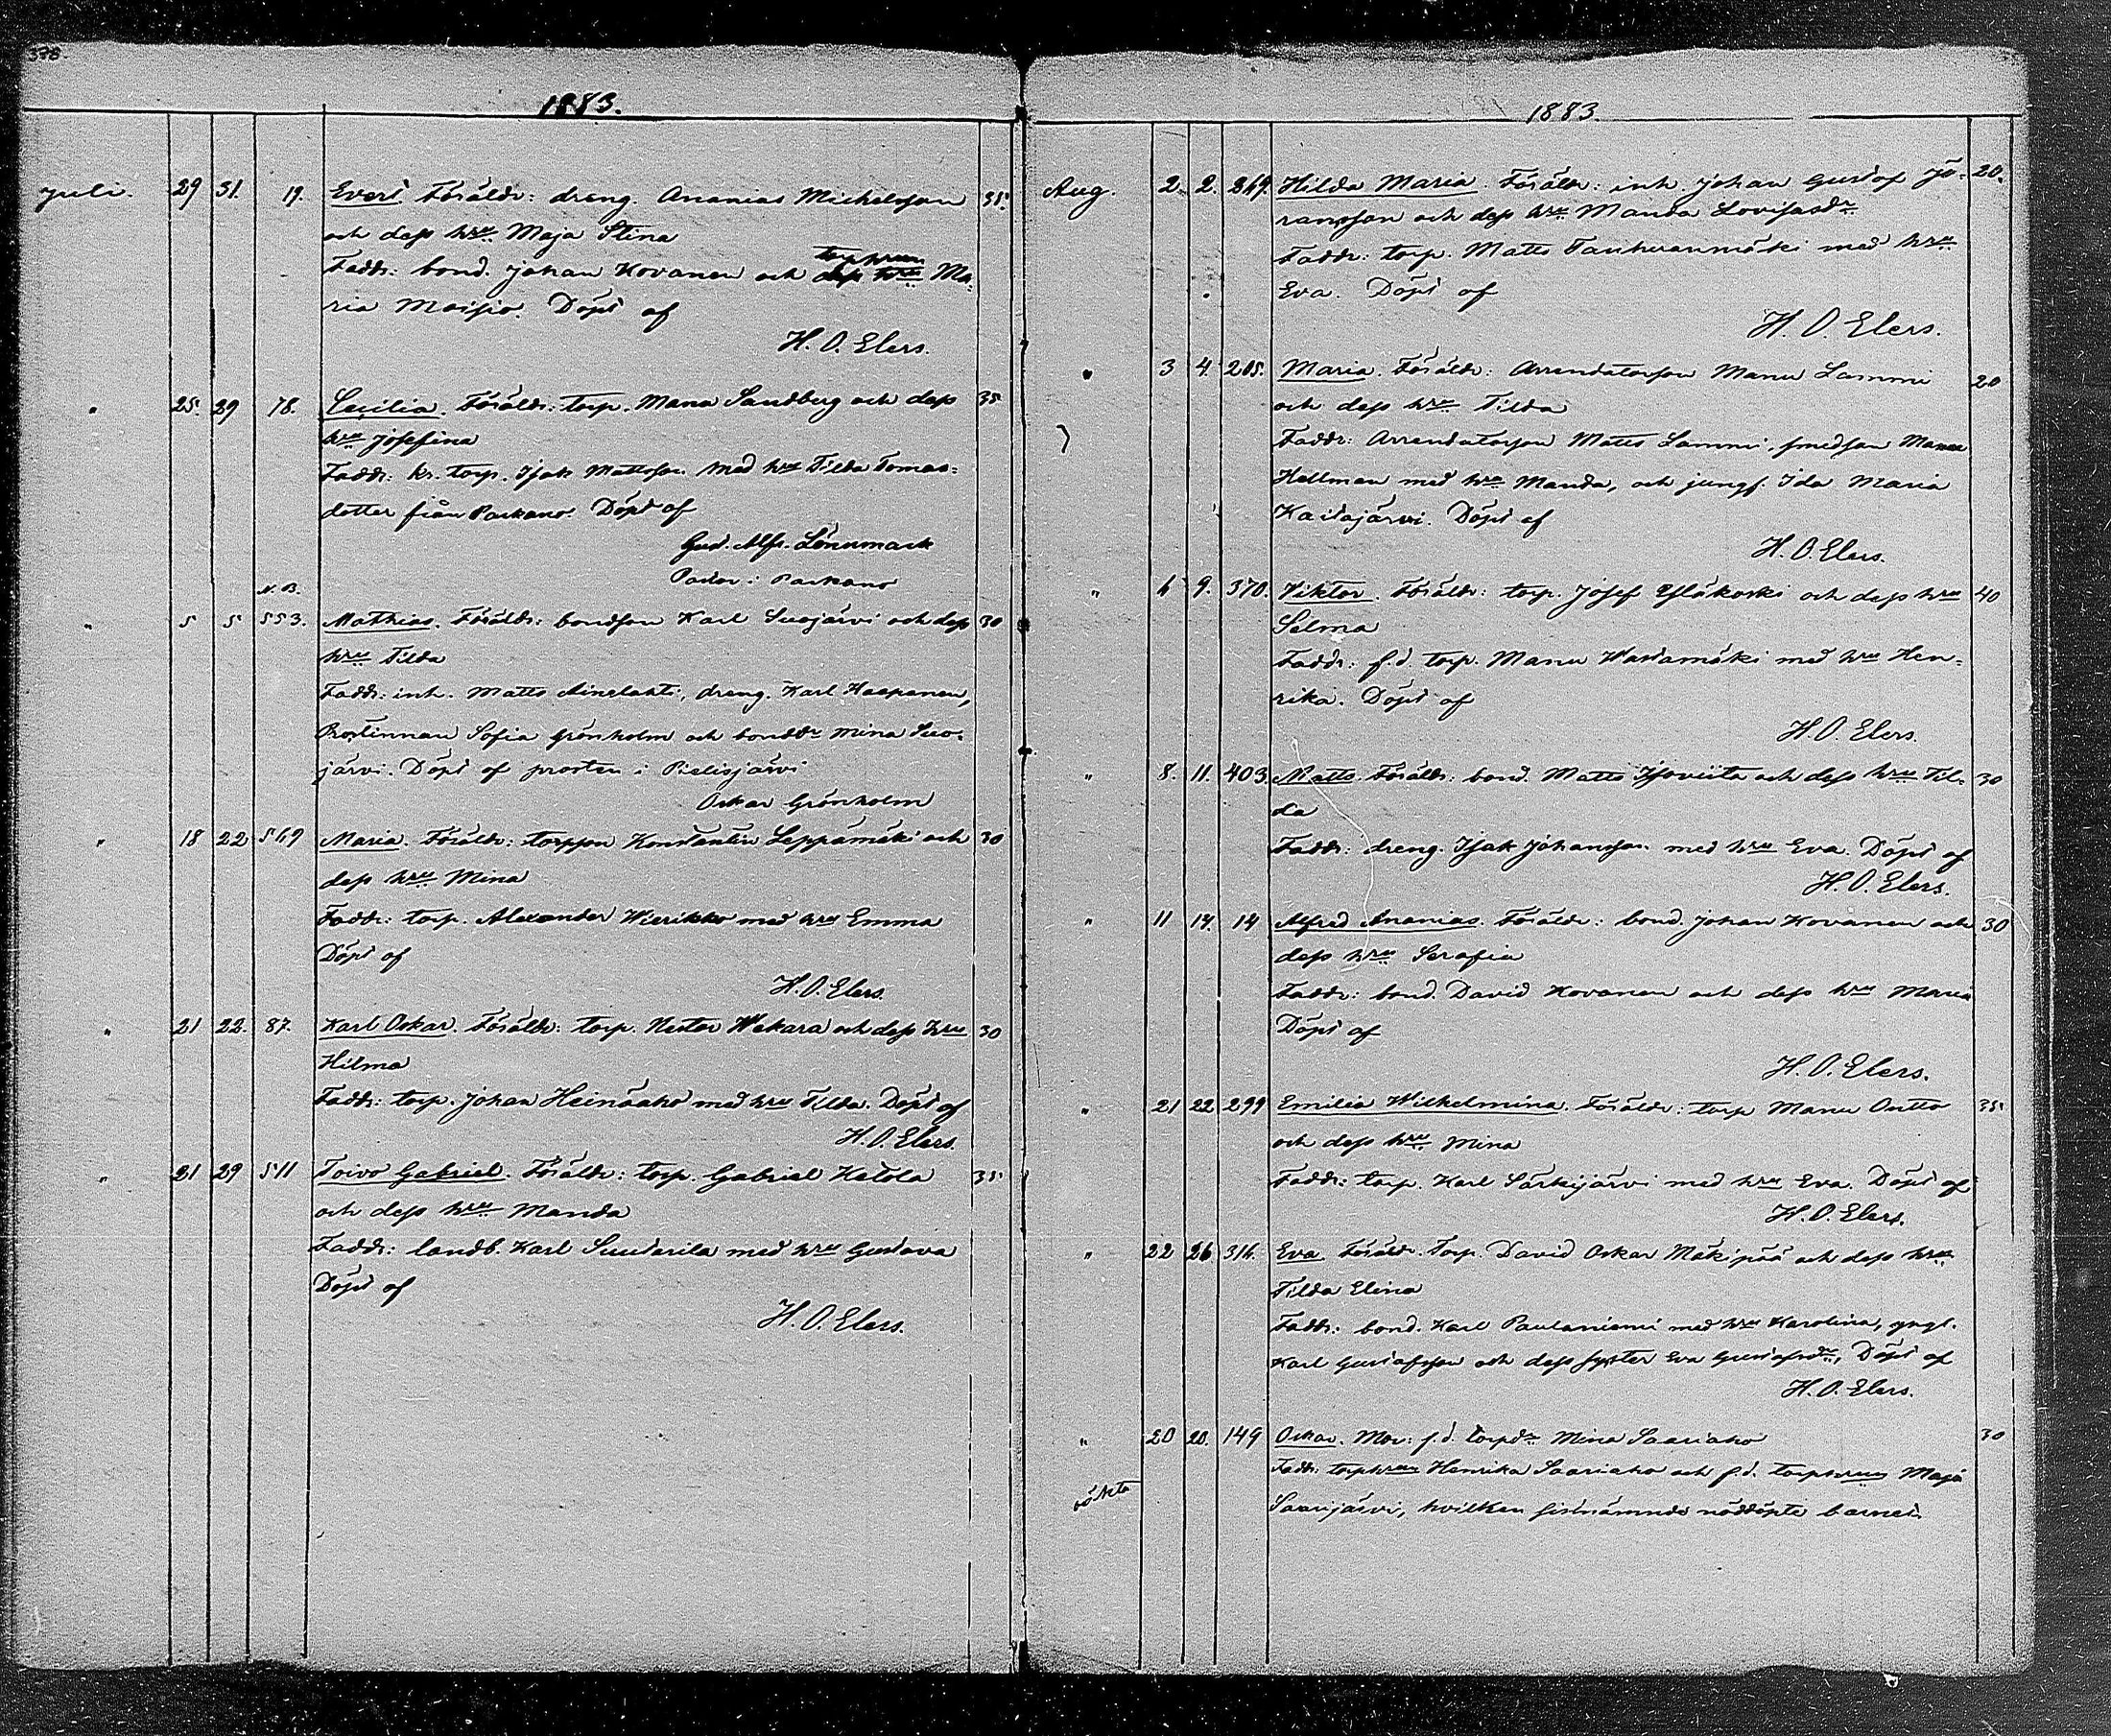 1883.
Juli. 29 31. 19. Evert. Föräldr: dreng. Ananias Michelsson 35.
och dess hru Maja Stina
Faddr: bond. Johan Kovanen och torphrun Ma-
ria Moisio. Döpt af
H. O. Elers.
" 25. 29 78. Cecilia. Föräldr: torp. Manu Sandberg och dess 35
hru Josefina
Faddr: kr. torp. Isak Mattsson med hru Tilda Tomas=
dotter från Parkano. Döpt af
Gust. Alfr. Lönnmark
Pastor i Parkano
N. B.
" 5 5 553. Mathias. Föräldr: bondson Karl Suojärvi och dess 30
hru Tilda
Faddr: inh. Matts Ainelahti, dreng. Karl Haapanen,
Prostinnan Sofia Grönholm och bonddr Mina Suo-
järvi. Döpt af prosten i Pielisjärvi
Oskar Grönholm
" 18 22 569 Maria. Föräldr: torpson Konstantin Leppämäki och 30
dess hru Mina
Faddr: torp. Alexander Wierikko med hru Emma
Döpt af
H. O. Elers.
" 21 22. 87. Karl Oskar. Föräldr: torp. Nestor Wakara och dess hru 30
Hilma
Faddr: torp. Johan Heinäaho med hru Tilda. Döpt af
H. O. Elers.
" 21 29 511 Toivo Gabriel. Föräldr: torp. Gabriel Ketola 35
och dess hru Manda
Faddr: landb. Karl Suutarila med hru Gustava
Döpt af
H. O. Elers.
1883.
Aug. 2. 2. 269. Hilda Maria. Föräldr: inh. Johan Gustaf Jö- 20.
ransson och dess hru Manda Lovisasdr
Faddr: torp. Matts Tanhuanmäki med hru
Eva. Döpt af
H. O. Elers.
" 3 4. 205. Maria. Föräldr: Arrendatorson Manu Lammi 20
och dess hru Tilda
Faddr: Arrendatorson Matts Lammi, smedson Manu
Hellman med hru Manda, och jungf. Ida Maria
Kaitajärvi. Döpt af
H. O. Elers.
" 6 9. 370. Viktor. Föräldr: torp. Josef Yläkoski och dess hru 40
Selma
Faddr: f.d. torp. Manu Wastamäki med hru Hen-
rika. Döpt af
H. O. Elers.
" 8. 11. 403 Matts. Föräldr: bond. Matts Isoviita och dess hru Til- 30
da
Faddr: dreng. Isak Johansson med hru Eva. Döpt af
H. O. Elers.
" 11 14. 14 Alfred Ananias. Föräldr: bond. Johan Kovanen och 30
dess hru Serafia
Faddr: bond. David Kovanen och dess hru Maria
Döpt af
H. O. Elers.
" 21 22 299 Emilia Wilhelmina. Föräldr: torp Manu Ontto 35
och dess hru Mina
Faddr: torp. Karl Särkijärvi med hru Eva. Döpt af
H. O. Elers.
" 22 26. 316. Eva. Föräldr. Torp. David Oskar Mäkipää och dess hru
Tilda Elina
Faddr: bond. Karl Paulaniemi med hru Karolina, yngl.
Karl Gustafsson och dess syster Eva Gustafsdr, Döpt af
H. O. Elers.
" 20 20. 149 Oskar. Mor: f.d. torpdr Mina Saariaho 30
Faddr: torphrun Henrika Saariaho och f.d. torphrun Maja
oäkta Saarijärvi, hvilken sistnämnde nöddöpte barnet.